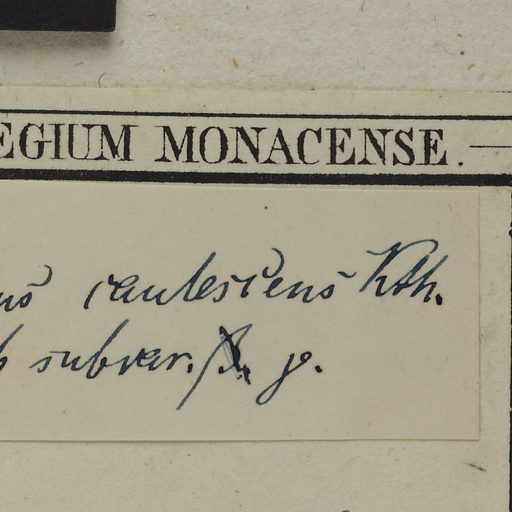 EGIUM MONACENSE.
us caulescens Kth.
b subvar. γ.